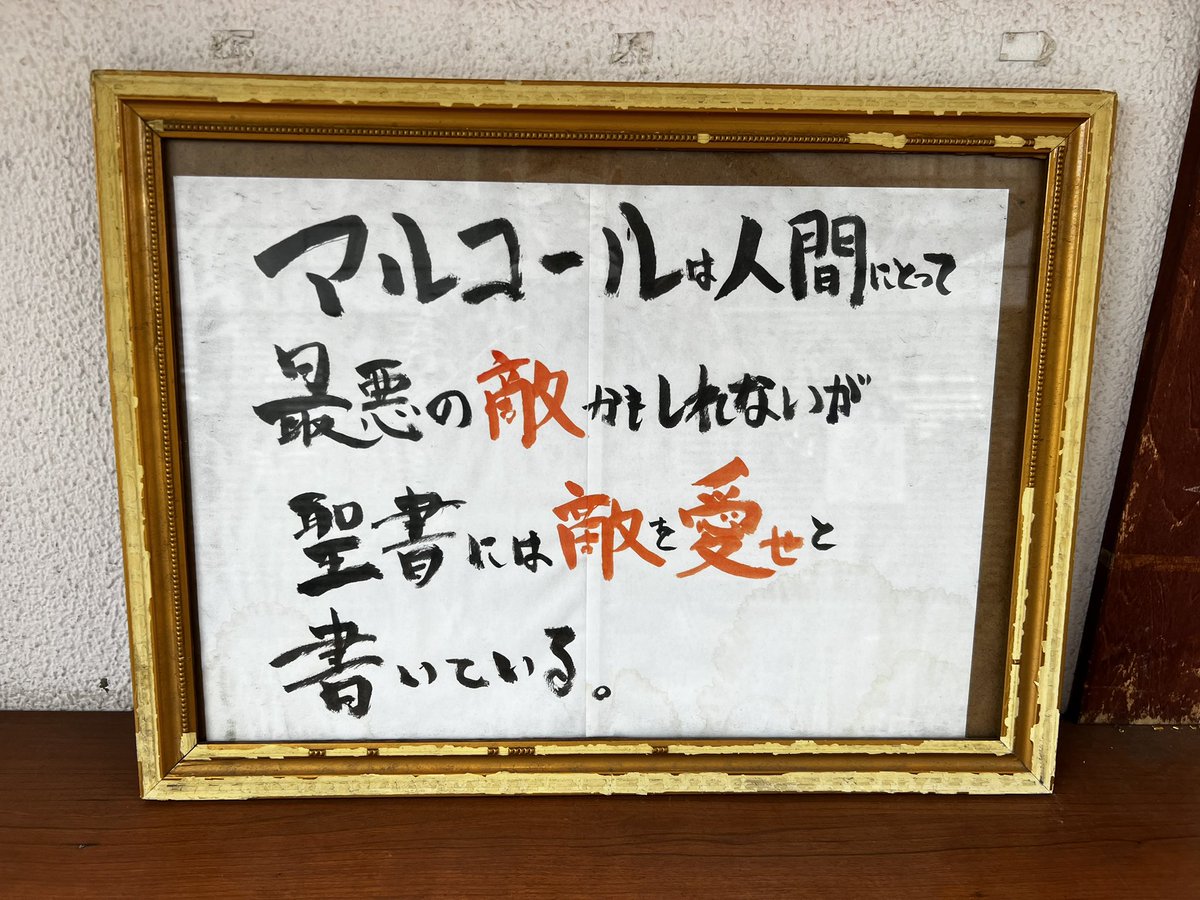 マルコールは人間にとって
最悪の敵かもしれないが
聖書には敵を愛せと
書いている。